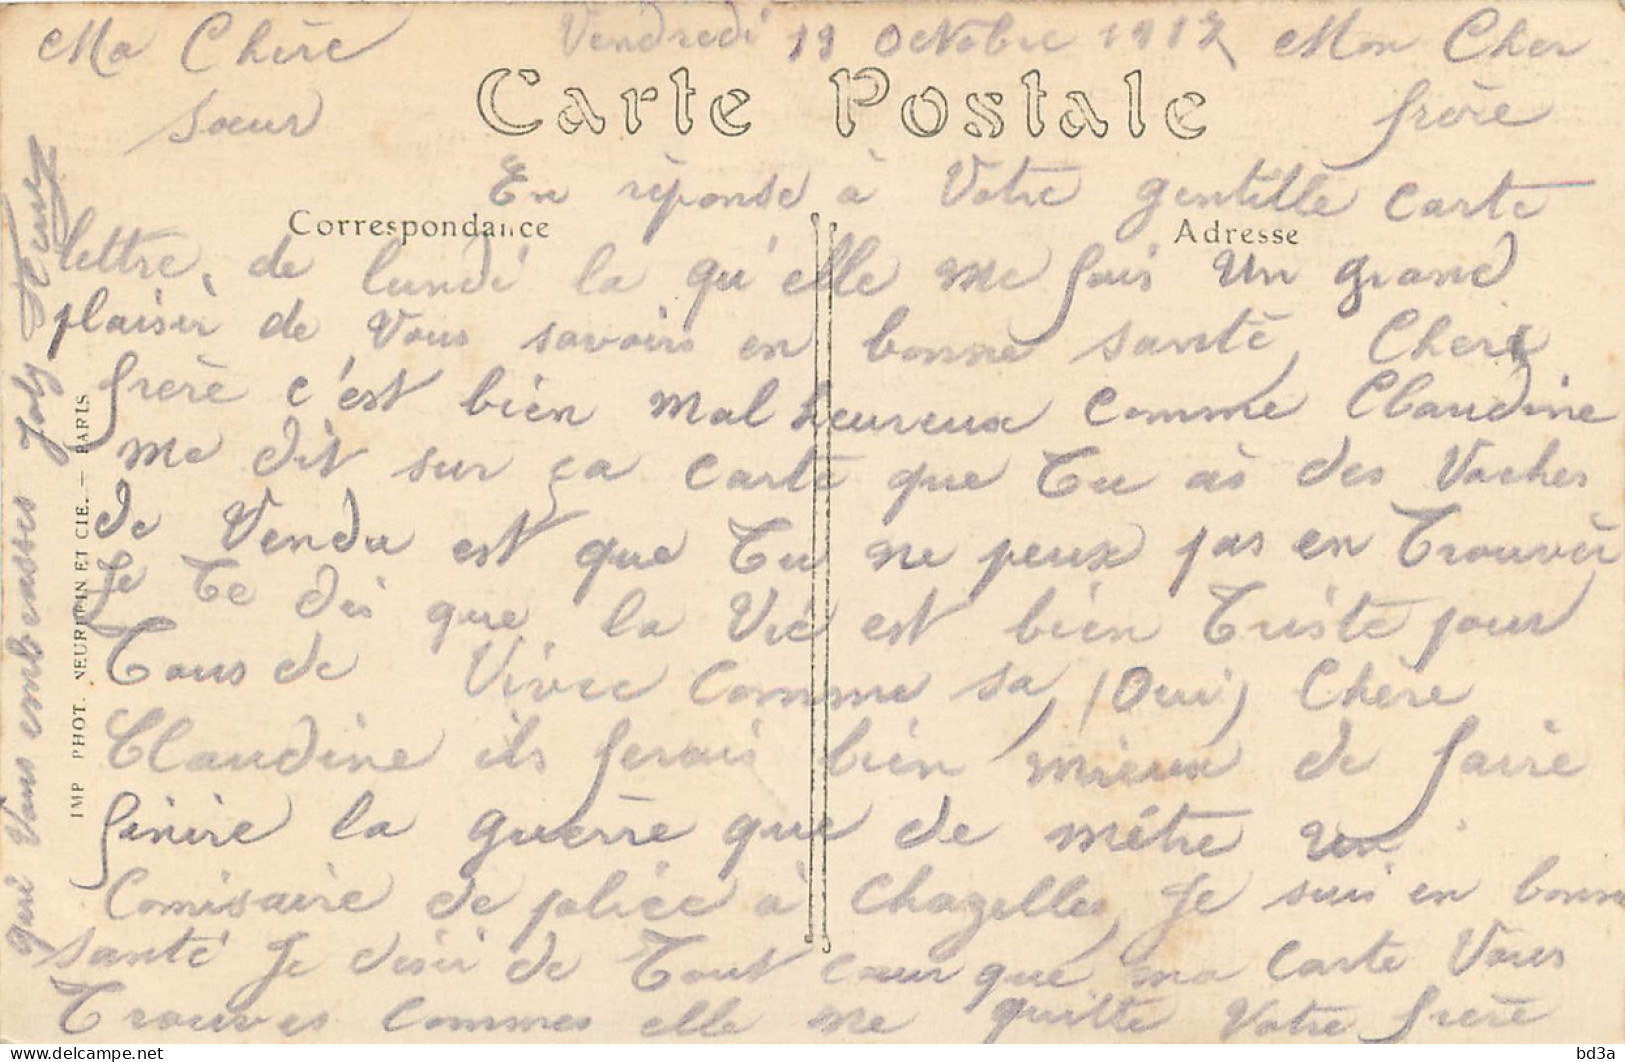 Ma Chère Vendredi 19 Octobre 1917 Mon Cher
sœur Carte Postale frère
En réponse à Votre gentille carte
Correspondance Adresse
lettre, de lundi la qu'elle me fais un grand
plaisir de Vous savoirs en bonne santé, Cher
frère c'est bien malheureux comme Claudine
me dit sur ça carte que Tu as des Vaches
de Vendu est que Tu ne peux pas en Trouvér
Je Te dis que la Vie est bien Triste pour
Tous de Vivre comme sa, (Oui) Chère
Claudine ils ferais bien mieux de faire
finire la guerre que de métre un
Comisaire de police à Chazelles, Je suis en bonne
santé Je désir de Tout cœur que ma carte Vous
Trouves commes elle me quitte Votre frère
qui Vous embrasses Joly
IMP PHOT. NEURDEIN ET CIE. — PARIS
delcampe.net
bd3a